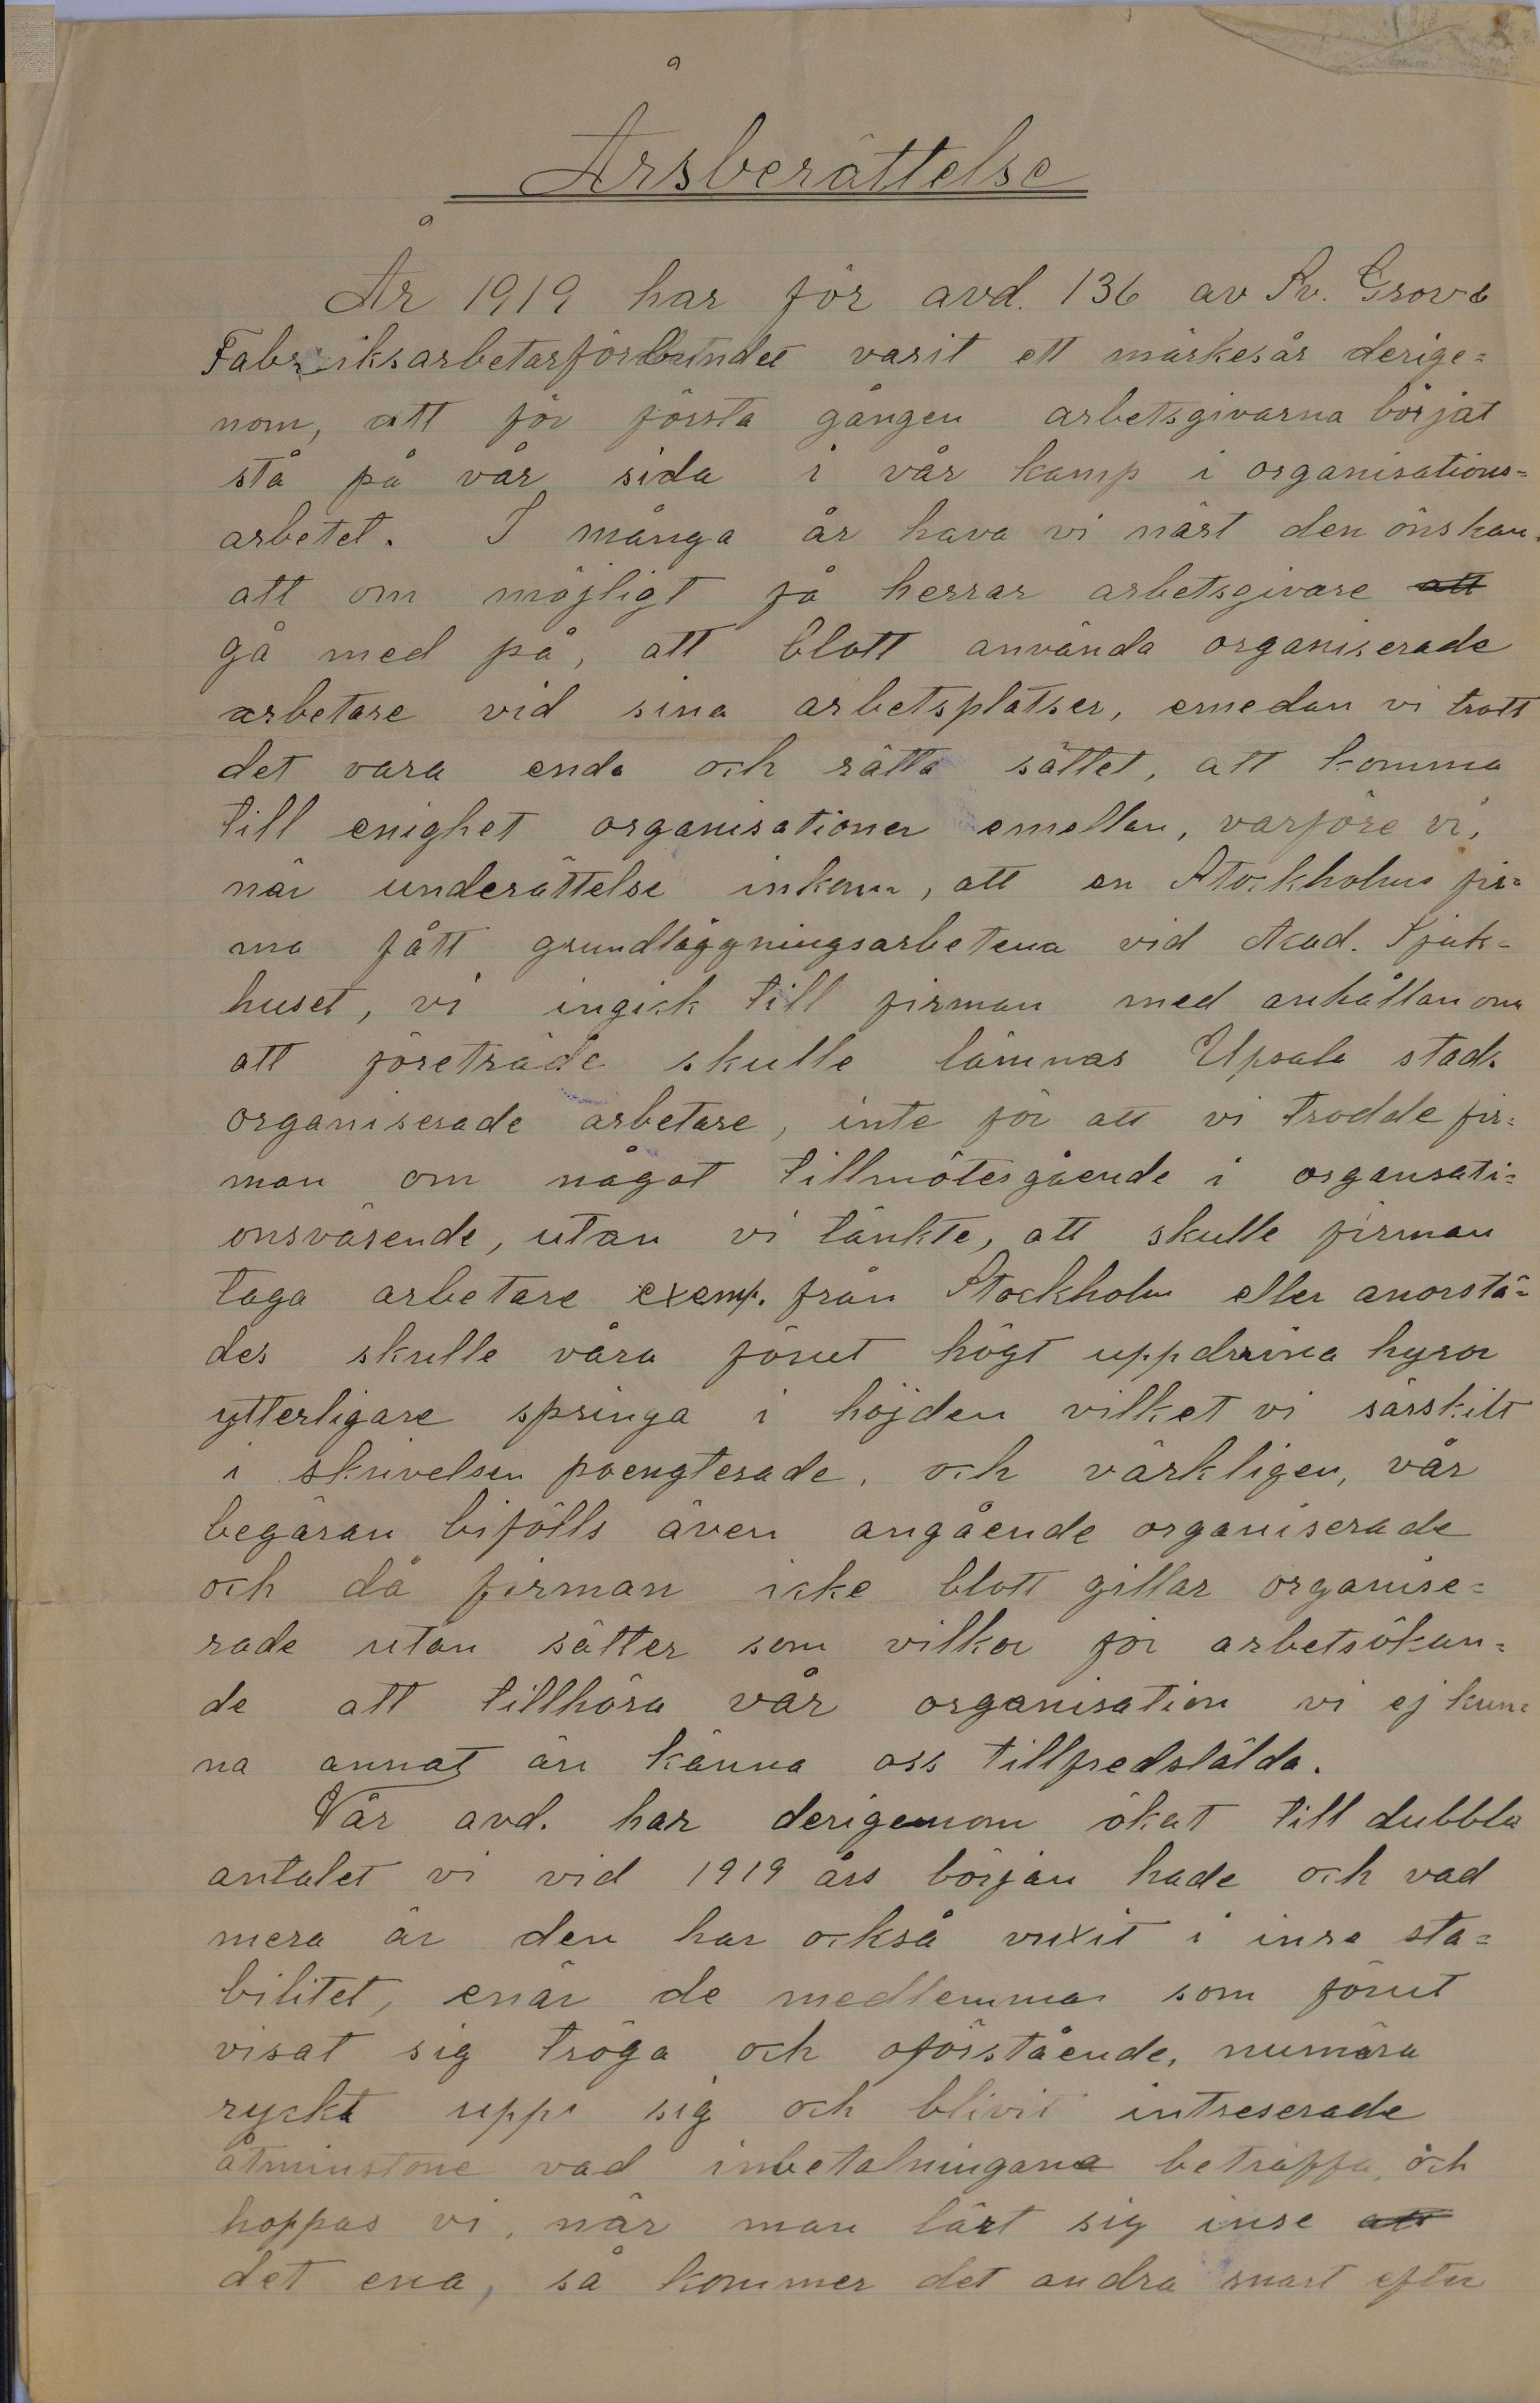 Årsberättelse
År 1919 har för avd. 136 av Sv. Grov &
Fabriksarbetarförbundet varit ett märkesår derige=
nom, att för första gången arbetsgivarna börjat
stå på vår sida i vår kamp i organisations=
arbetet. I många år hava vi närt den önskan,
att om möjligt få herrar arbetsgivare att
gå med på, att blott använda organiserade
arbetare vid sina arbetsplatser, emedan vi trott
det vara enda och rätta sättet, att komma
till enighet organisationer emellan, varföre vi,
när underättelse inkom, att en Stockholms fir=
ma fått grundläggningsarbetena vid Acad. Sjuk=
huset, vi ingick till firman med anhållan om
att företräde skulle lämnas Upsala stads
organiserade arbetare, inte för att vi trodde fir=
man om något tillmötesgående i organsati=
onsväsende, utan vi tänkte, att skulle firman
taga arbetare exemp. från Stockholm eller anorstä=
des skulle våra förut högt uppdrivna hyror
ytterligare springa i höjden vilket vi särskilt
i skrivelsen poengterade, och värkligen, vår
begäran bifölls även angående organiserade
och då firman icke blott gillar organise=
rade utan sätter som vilkor för arbetsökan=
de att tillhöra vår organisation vi ej kun=
na annat än känna oss tillfredstälda.
Vår avd. har derigenom ökat till dubbla
antalet vi vid 1919 års början hade och vad
mera är den har också vuxit i inre sta=
bilitet, enär de medlemmar som förut
visat sig tröga och oförstående, numära
ryckt upp sig och blivit intreserade
åtminstone vad inbetalningarna beträffa, och
hoppas vi, när man lärt sig inse att
det ena, så kommer det andra snart efter